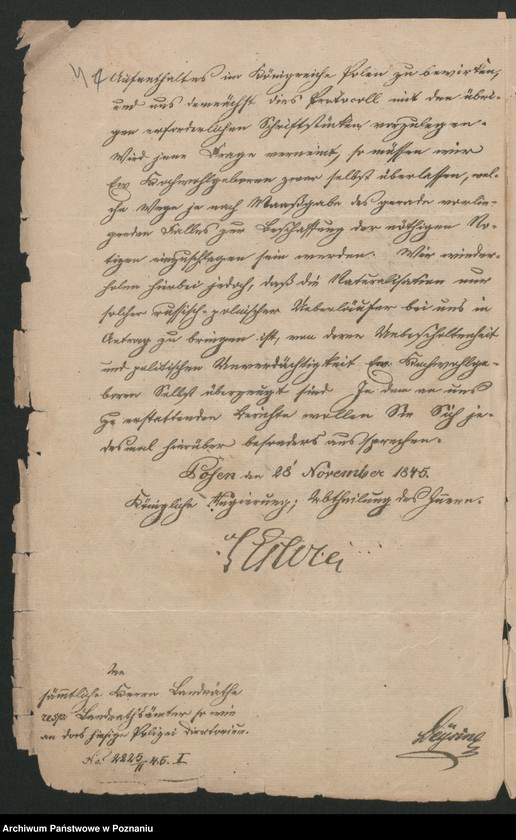 Aufenthaltes im Königreiche Polen zu bewirken,
und uns demnächst dies Protocoll mit den übri-
gen erforderlichen Schriftstücken vorzulegen.
Wird jene Frage verneint, so müssen wir
Ew. Hochwohlgeboren zwar selbst überlassen, wel-
che Wege je nach Maaßgabe des gerade vorlie-
genden Falles zur Beschaffung der nöthigen No-
tizen einzuschlagen sein werden. Wir wieder-
holen hierbei jedoch, daß die Naturalisation nur
solcher russisch-polnischer Ueberläufer bei uns in
Antrag zu bringen ist, von deren Unbescholtenheit
und politischen Unverdächtigkeit Ew. Hochwohlge-
boren Selbst überzeugt sind. In dem an uns
zu erstattenden Berichte wollen Sie Sich je-
desmal hierüber besonders aussprechen.
Posen den 28 November 1845.
Königliche Regierung; Abtheilung des Innern.
An
sämmtliche Herrn Landräthe
resp. Landrathsämter so wie
an das hiesige Polizei Directorium.
No. 2225/11 45. I
Archiwum Państwowe w Poznaniu